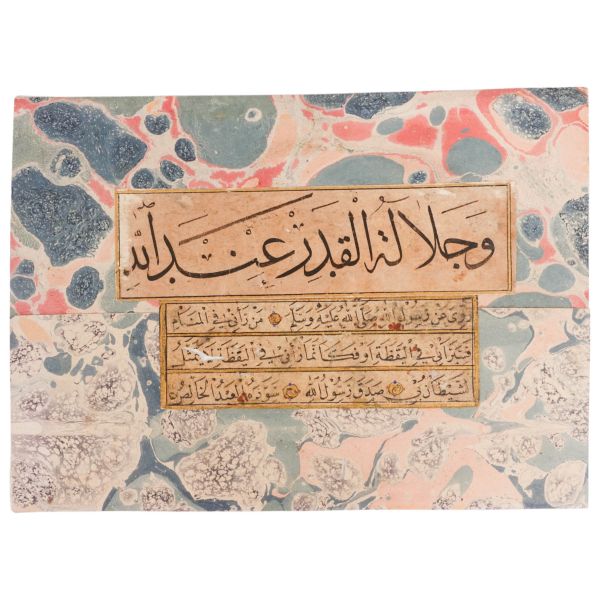 وَجَلَالَةُ الْقَدْرِ عِنْدَ اللّٰهِ
رُوِيَ عَنْ رَسُولِ اللّٰهِ صَلَّى اللّٰهُ عَلَيْهِ وَسَلَّمَ مَنْ رَآنِي فِي الْمَنَامِ
فَسَيَرَانِي فِي الْيَقَظَةِ اَوْ فَكَاَنَّمَا رَآنِي فِي الْيَقَظَةِ
الشَّيْطَانُ بِي صَدَقَ رَسُولُ اللّٰهِ سَوَّدَهُ الْعَبْدُ